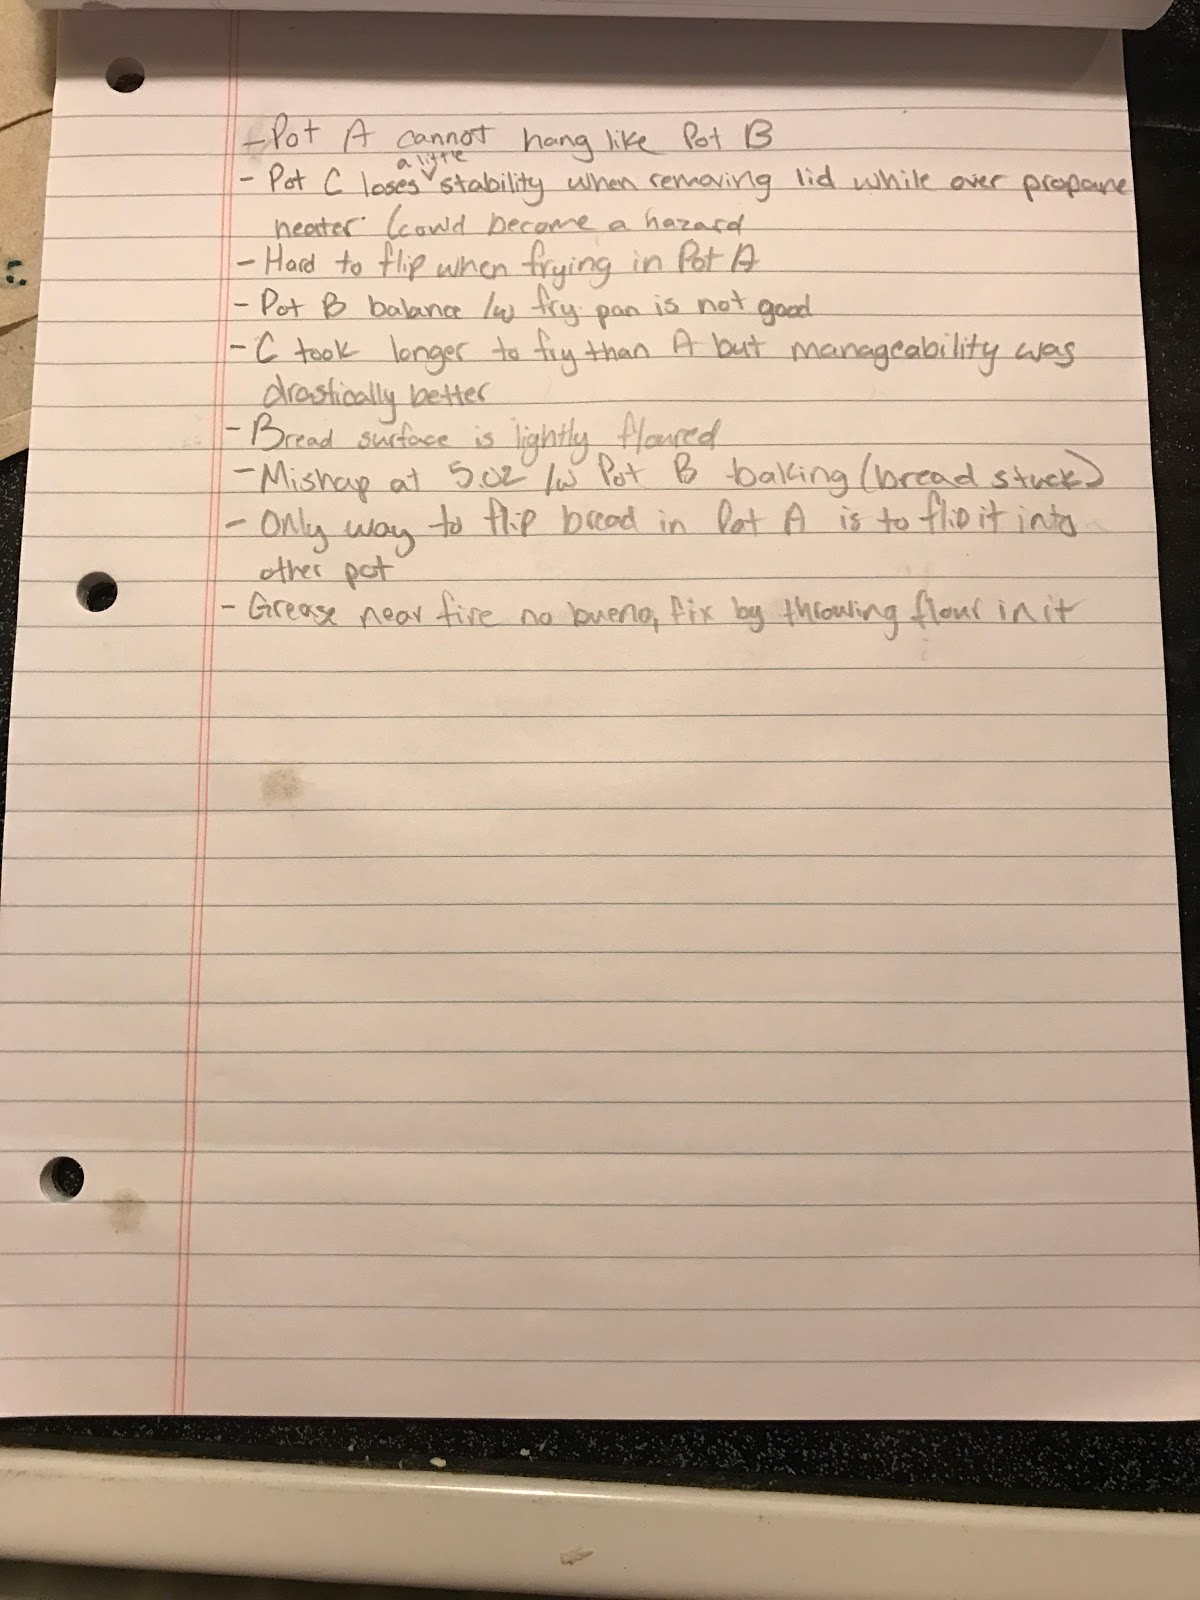 - Pot A cannot hang like Pot B
- Pot C loses a little stability when removing lid while over propane
heater (could become a hazard
- Hard to flip when frying in Pot A
- Pot B balance /w fry pan is not good
- C took longer to fry than A but manageability was
drastically better
- Bread surface is lightly floured
- Mishap at 5:02 /w Pot B baking (bread stuck)
- Only way to flip bread in Pot A is to flip it into
other pot
- Grease near fire no bueno, fix by throwing flour in it